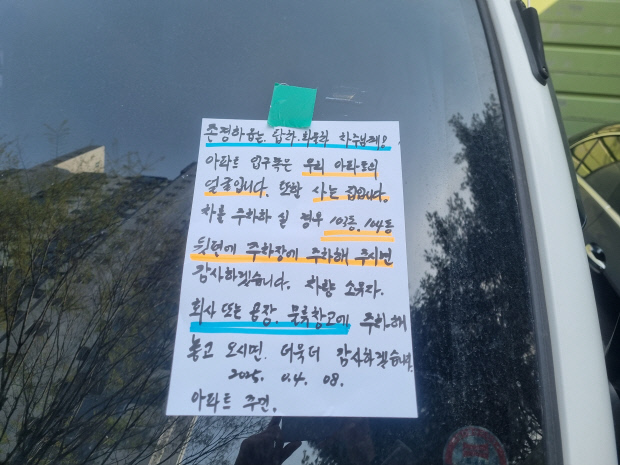 존경하옵는, 탑차, 화물차 차주님께!
아파트 입구쪽은 우리 아파트의
얼굴입니다. 또한 사는 집입니다.
차를 주차하 실 경우 103동. 104동
뒷편에 주차장에 주차해 주시면
감사하겠습니다. 차량 소유자.
회사 또는 공장. 물류창고에 주차해
놓고 오시면. 더욱더 감사하겠습니다.
2025. 0.4. 08.
아파트 주민.